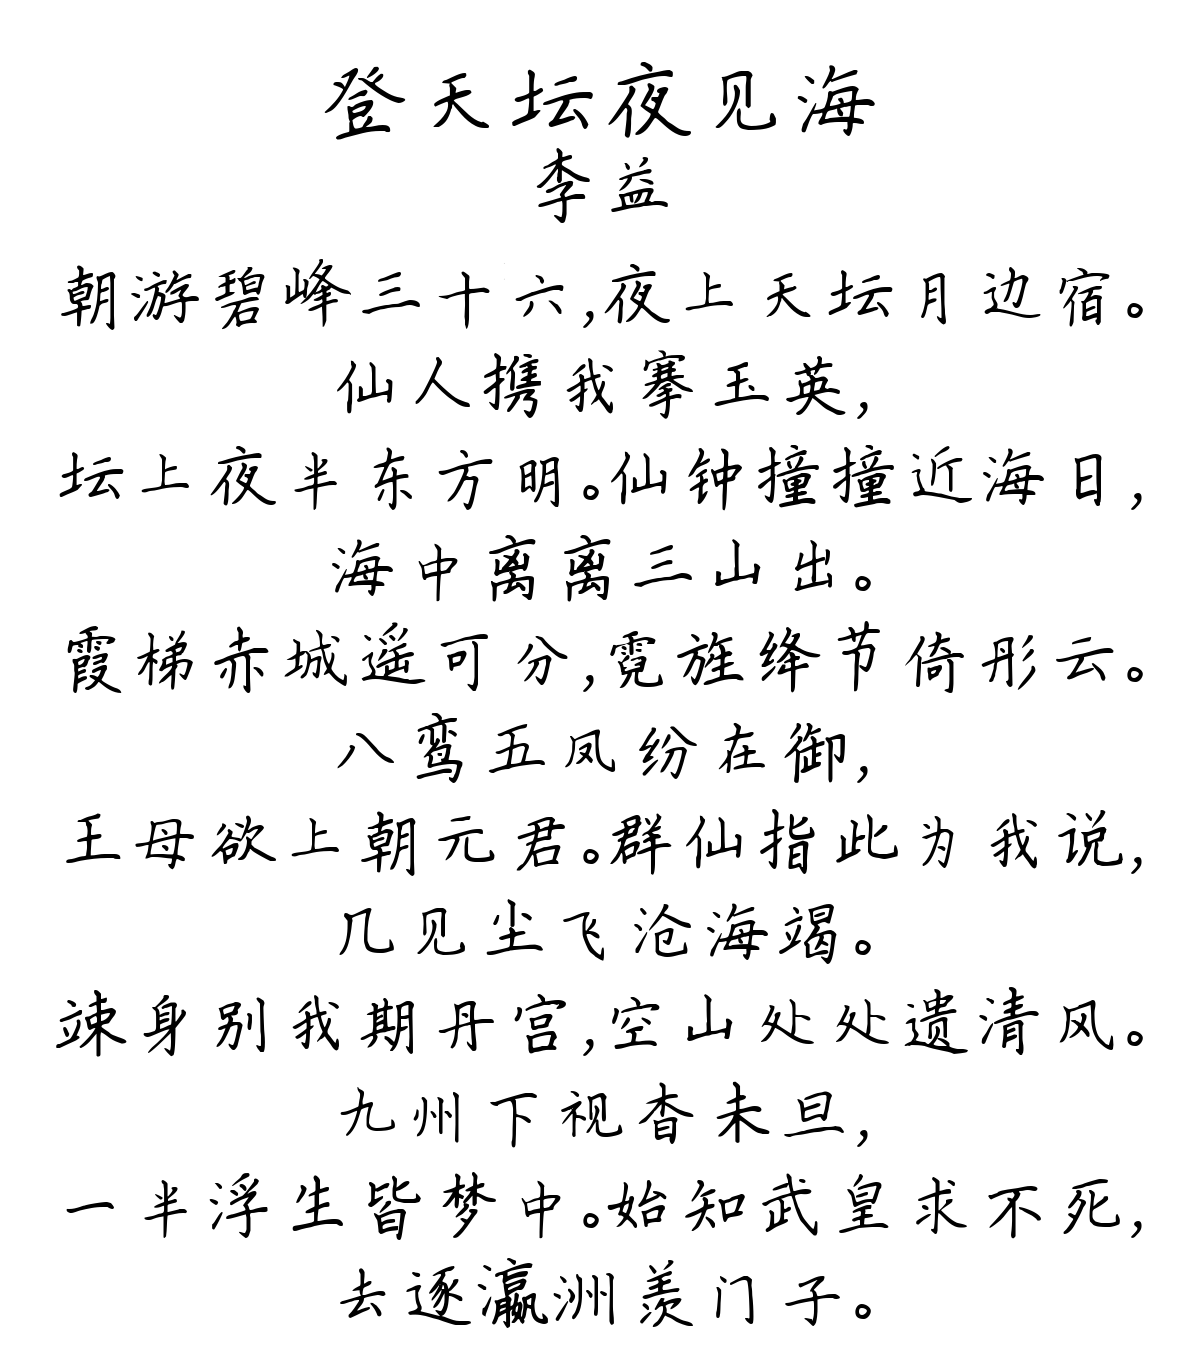 登天坛夜见海
李益
朝游碧峰三十六,夜上天坛月边宿。
仙人携我搴玉英,
坛上夜半东方明。仙钟撞撞近海日,
海中离离三山出。
霞梯赤城遥可分,霓旌绛节倚彤云。
八鸾五凤纷在御,
王母欲上朝元君。群仙指此为我说,
几见尘飞沧海竭。
竦身别我期丹宫,空山处处遗清风。
九州下视杳未旦,
一半浮生皆梦中。始知武皇求不死,
去逐瀛洲羡门子。